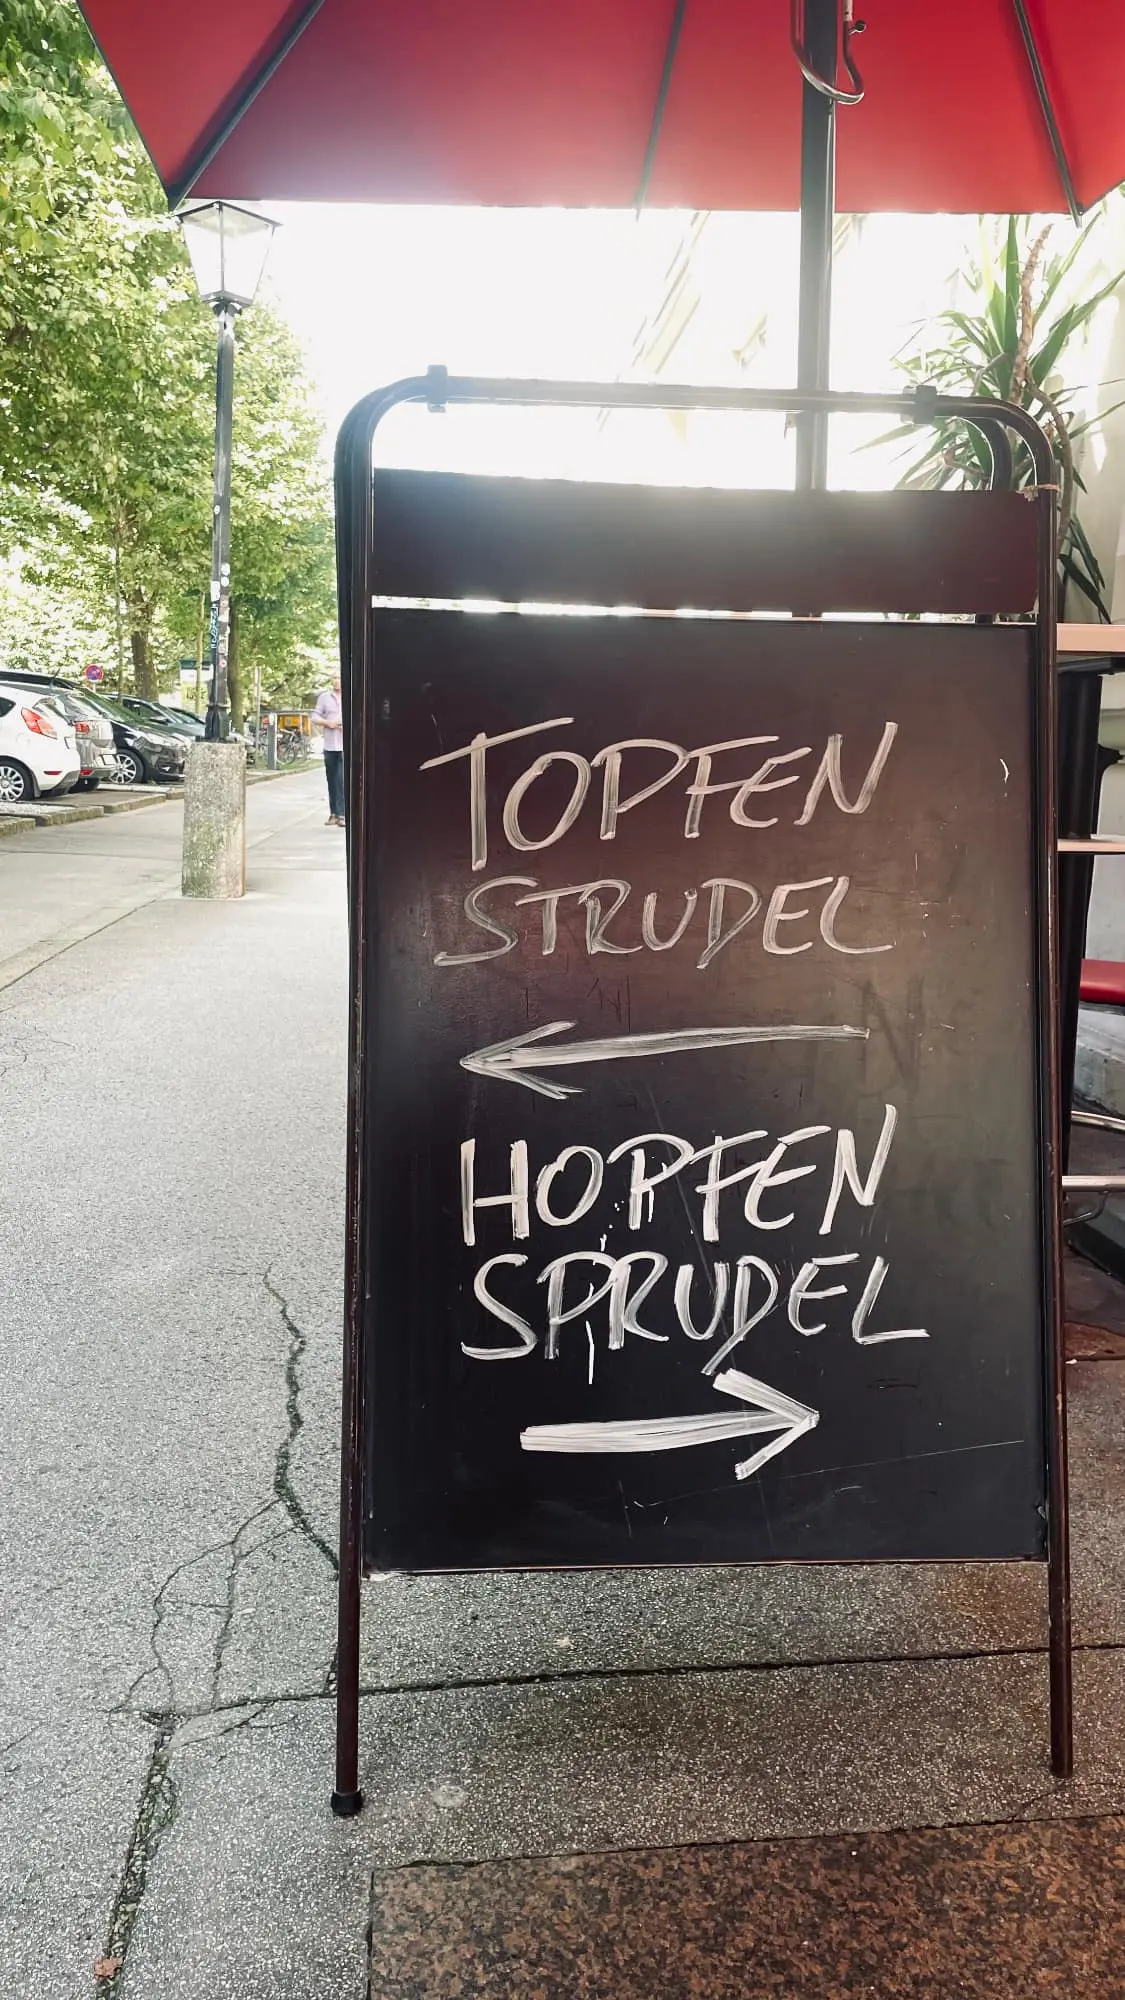 TOPFEN
STRUDEL
HOPFEN
SPRUDEL